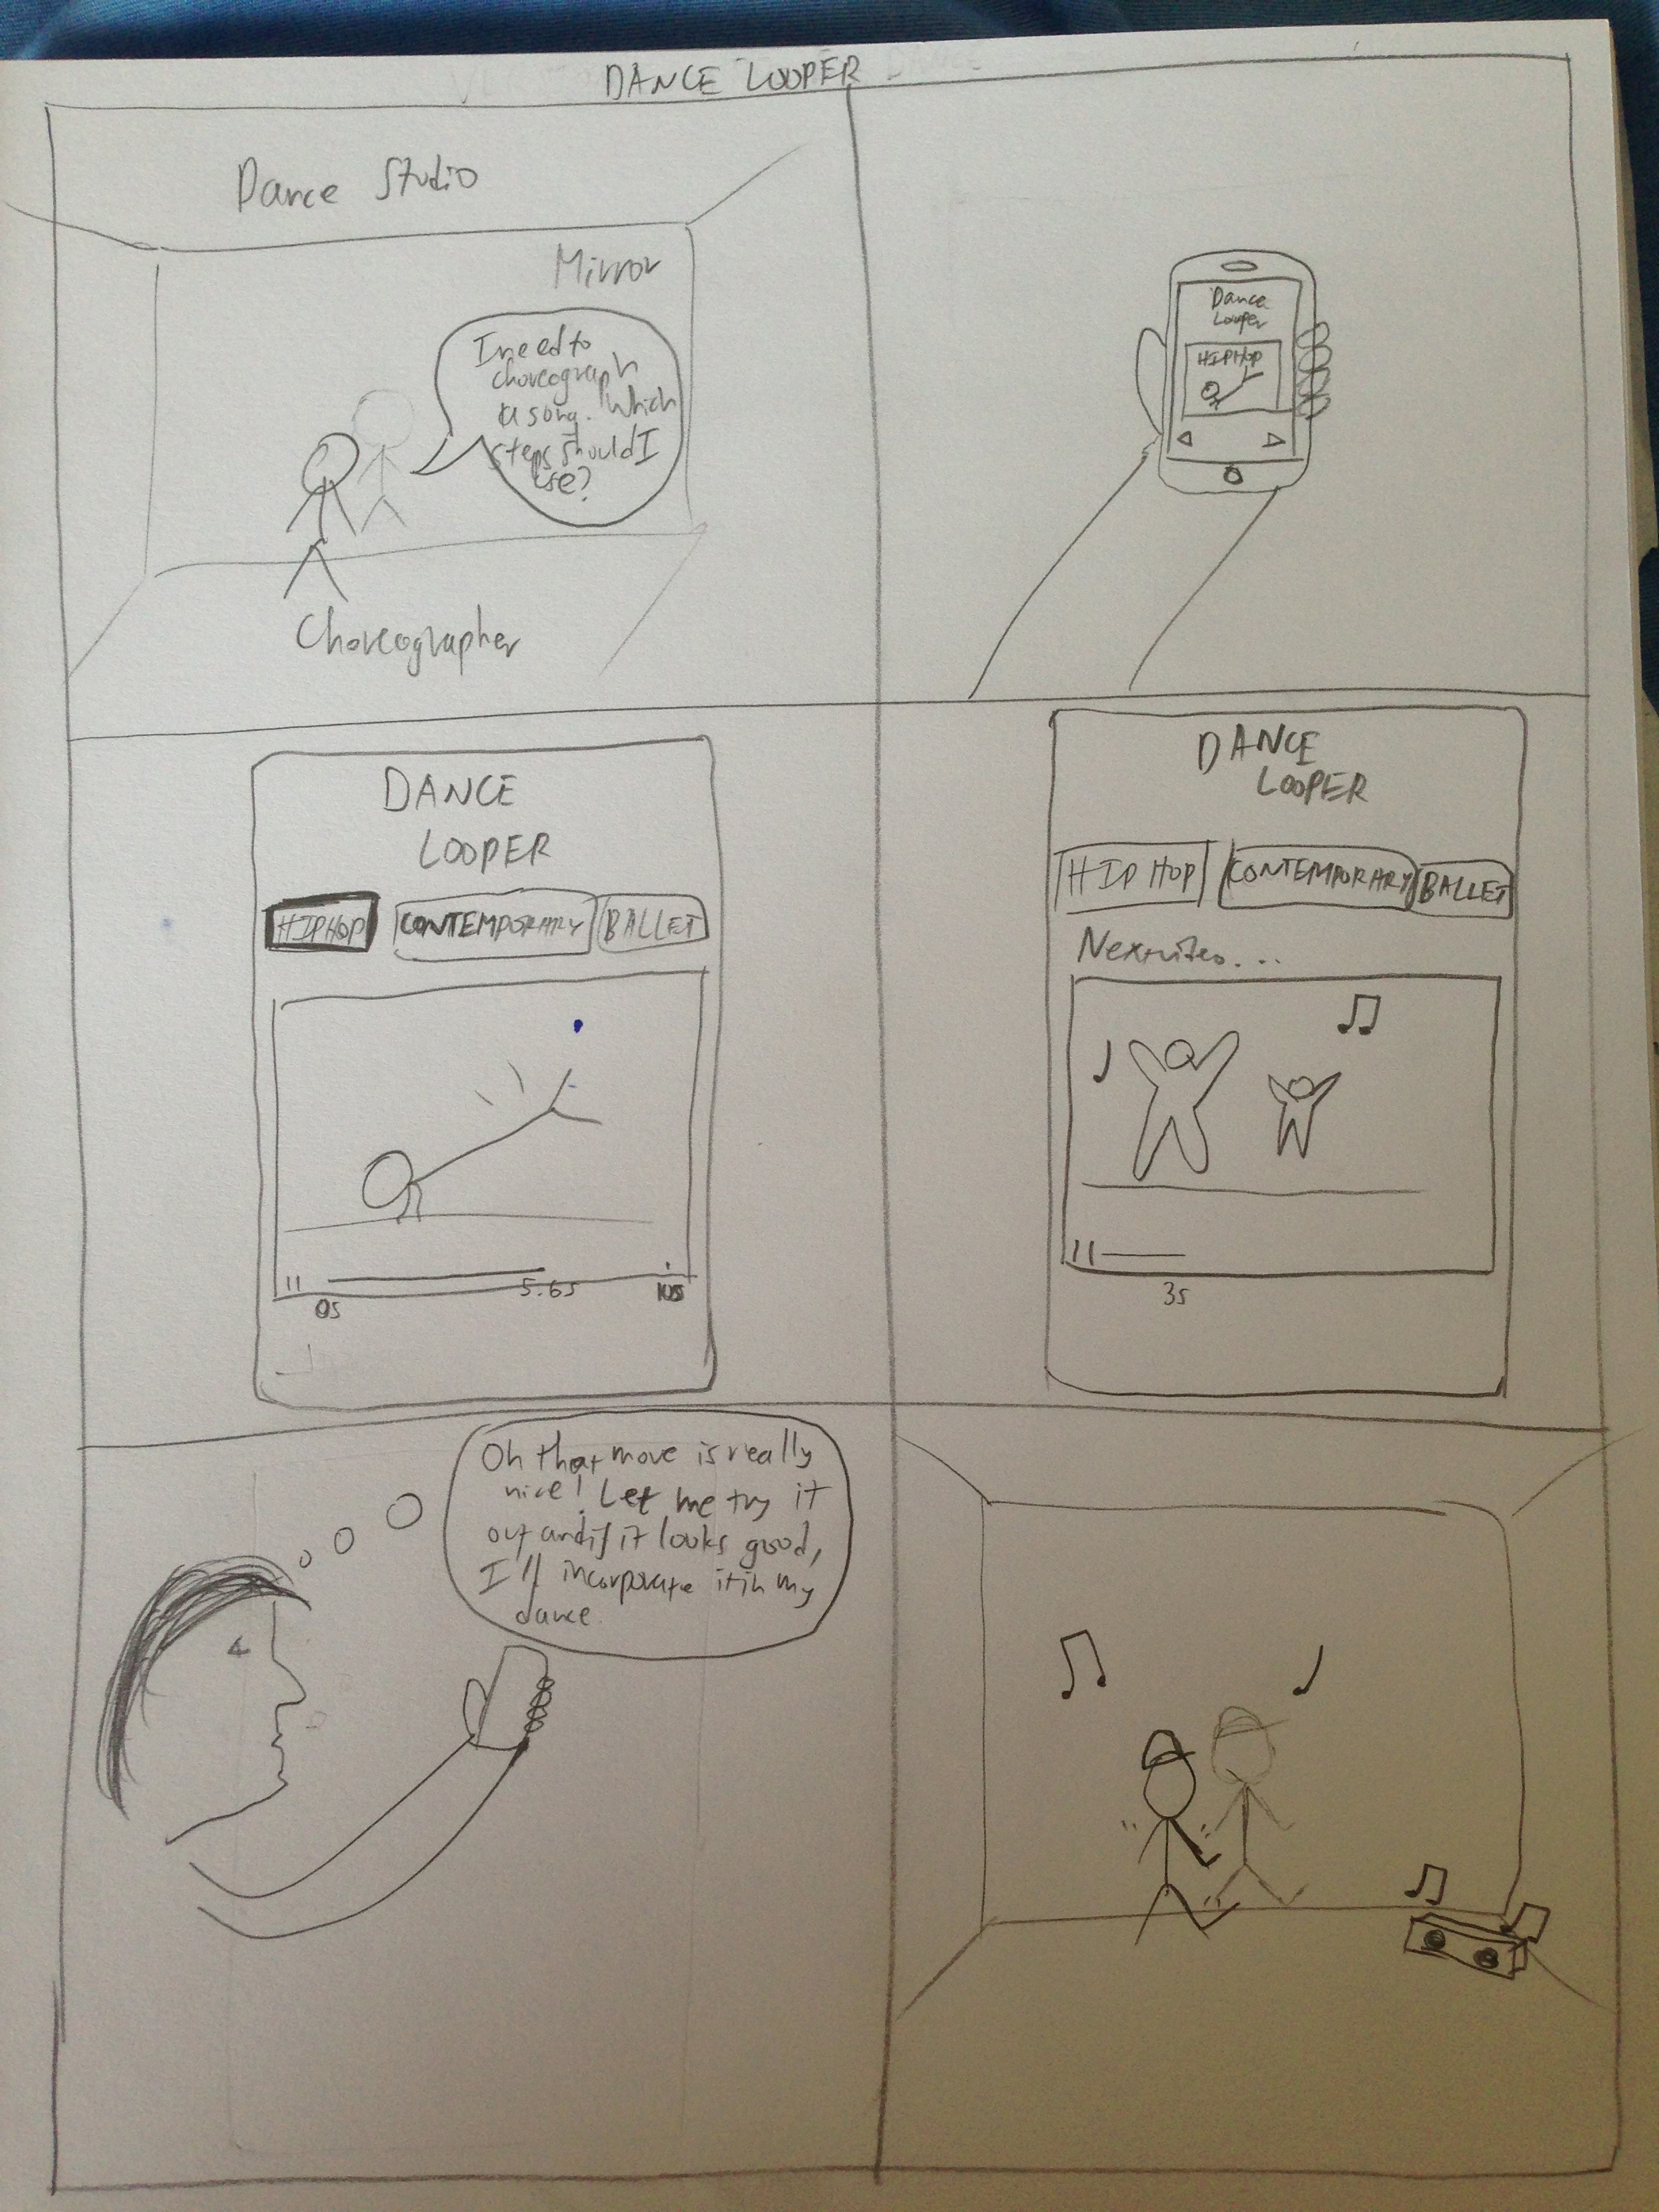 DANCE LOOPER
Dance Studio
Mirror
I need to
choreograph
a song. Which
steps should I
use?
Choreographer
Dance
Looper
HIPHOP
DANCE
LOOPER
HIPHOP CONTEMPORARY BALLET
0s 5.6s 10s
DANCE
LOOPER
HIP HOP CONTEMPORARY BALLET
Next video...
3s
Oh that move is really
nice! Let me try it
out and if it looks good,
I'll incorporate it in my
dance.